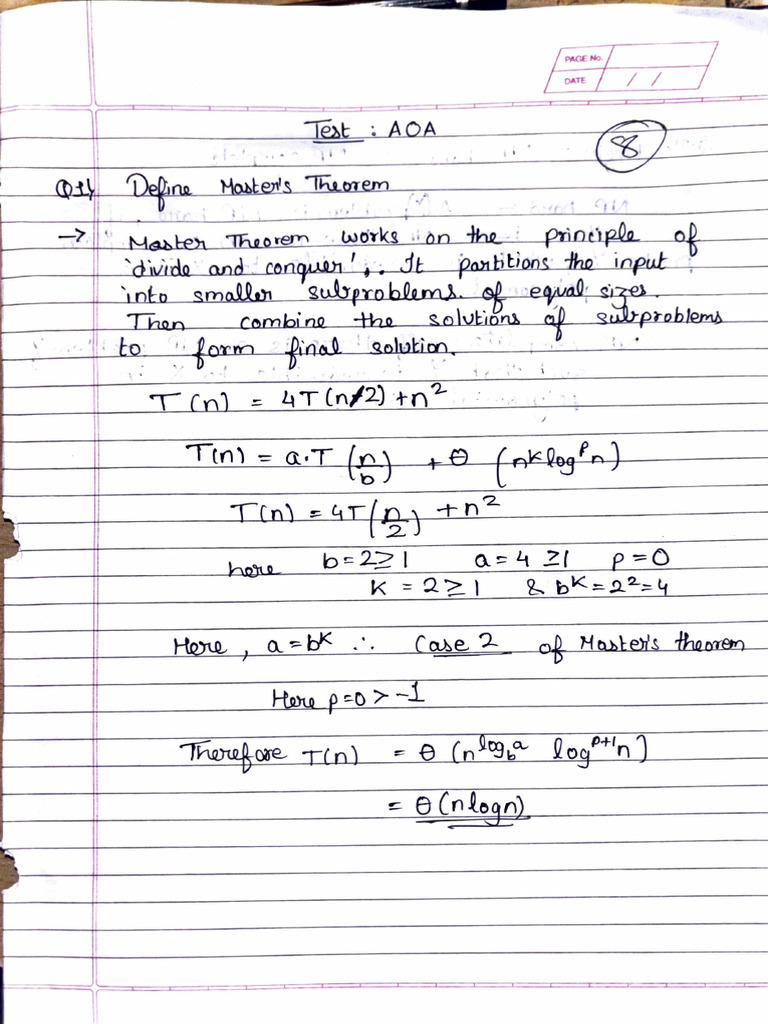 PAGE No.
DATE / /
Test : AOA
8
Q1) Define Master's Theorem
→ Master Theorem works on the principle of
'divide and conquer',. It partitions the input
into smaller subproblems. of equal sizes.
Then combine the solutions of subproblems
to form final solution.
T(n) = 4T(n/2) + n²
T(n) = a·T (n/b) + θ (n^k log^p n)
T(n) = 4T (n/2) + n²
here b = 2 ≥ 1 a = 4 ≥ 1 p = 0
k = 2 ≥ 1 & b^k = 2² = 4
Here, a = b^k ∴ Case 2 of Master's theorem
Here p = 0 > -1
Therefore T(n) = θ (n^log_b a log^p+1 n)
= θ (n log n)